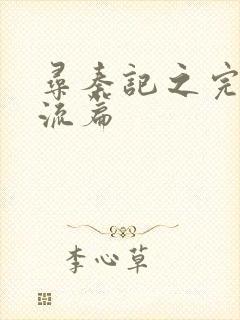 尋秦記之完
流篇
李心草